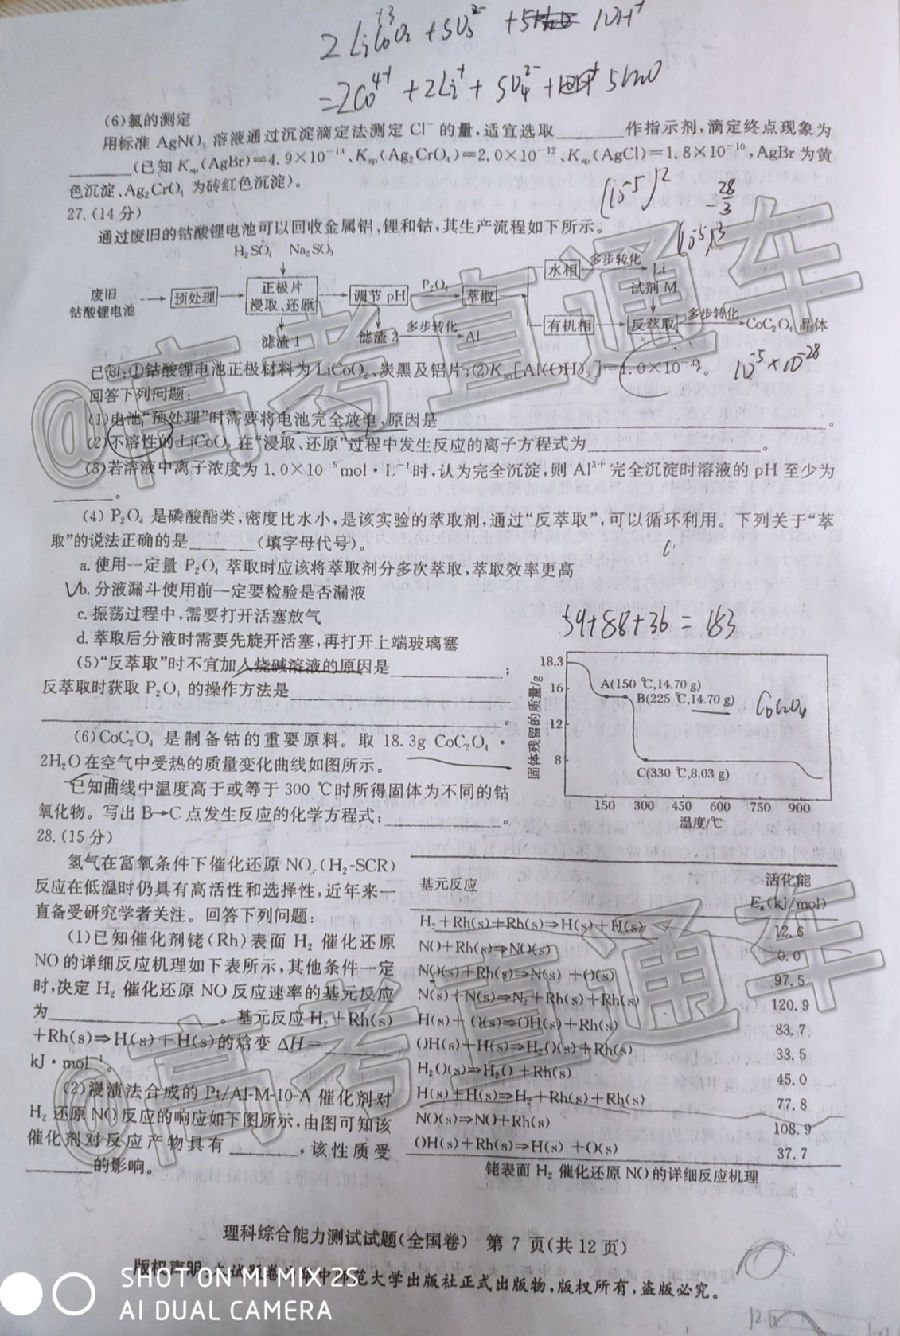 2LiCoO₂ + SO₃²⁻ + 10H⁺
=2Co⁴⁺ + 2Li⁺ + SO₄²⁻ + 5H₂O
(6)氯的测定
用标准 AgNO₃ 溶液通过沉淀滴定法测定 Cl⁻ 的量,适宜选取______作指示剂,滴定终点现象为
______(已知 Kₛₚ(AgBr)=4.9×10⁻¹³、Kₛₚ(Ag₂CrO₄)=2.0×10⁻¹²、Kₛₚ(AgCl)=1.8×10⁻¹⁰,AgBr 为黄
色沉淀、Ag₂CrO₄ 为砖红色沉淀)。
(10⁻⁵)²
-28/3
(10⁻⁵)³
27.(14分)
通过废旧的钴酸锂电池可以回收金属铝,锂和钴,其生产流程如下所示。
H₂SO₄ Na₂SO₃
水相 多步转化 Li
试剂 M
废旧
钴酸锂电池 预处理 正极片
浸取、还原 调节 pH P₂O₄ 萃取
有机相 反萃取 多步转化 CoC₂O₄ 晶体
滤渣 1 滤渣 2 多步转化 Al
已知:①钴酸锂电池正极材料为 LiCoO₂、炭黑及铝片;②Kₛₚ[Al(OH)₃]=1.0×10
10⁻⁵×10⁻²⁸
回答下列问题:
(1)电池“预处理”时需要将电池完全放电,原因是______。
(2)不溶性的 LiCoO₂ 在“浸取、还原”过程中发生反应的离子方程式为______。
(3)若溶液中离子浓度为 1.0×10⁻⁵mol·L⁻¹时,认为完全沉淀,则 Al³⁺ 完全沉淀时溶液的 pH 至少为
______。
(4) P₂O₄ 是磷酸酯类,密度比水小,是该实验的萃取剂,通过“反萃取”,可以循环利用。下列关于“萃
取”的说法正确的是______(填字母代号)。
a.使用一定量 P₂O₄ 萃取时应该将萃取剂分多次萃取,萃取效率更高
√b.分液漏斗使用前一定要检验是否漏液
c.振荡过程中,需要打开活塞放气
d.萃取后分液时需要先旋开活塞,再打开上端玻璃塞
59+88+36=183
(5)“反萃取”时不宜加入烧碱溶液的原因是______;
反萃取时获取 P₂O₄ 的操作方法是______
______。
(6)CoC₂O₄ 是制备钴的重要原料。取 18.3g CoC₂O₄·
2H₂O在空气中受热的质量变化曲线如图所示。
已知曲线中温度高于或等于 300 ℃时所得固体为不同的钴
氧化物。写出 B→C 点发生反应的化学方程式:______。
固体残留的质量/g
18.3
16
12
8
A(150 ℃,14.70 g)
B(225 ℃,14.70 g)
CoC₂O₄
C(330 ℃,8.03 g)
150 300 450 600 750 900
温度/℃
28.(15分)
氢气在富氧条件下催化还原 NOₓ(H₂-SCR)
反应在低温时仍具有高活性和选择性,近年来一
直备受研究学者关注。回答下列问题:
(1)已知催化剂铑(Rh)表面 H₂ 催化还原
NO的详细反应机理如下表所示,其他条件一定
时,决定 H₂ 催化还原 NO 反应速率的基元反应
为______。基元反应 H₂+Rh(s)
+Rh(s)⇒H(s)+H(s)的焓变 ΔH=______
kJ·mol⁻¹。
(2)浸渍法合成的 Pt/Al-M-10-A 催化剂对
H₂ 还原NO反应的响应如下图所示,由图可知该
催化剂对反应产物具有______,该性质受
______的影响。
基元反应 活化能
Eₐ(kJ/mol)
H₂+Rh(s)+Rh(s)⇒H(s)+H(s) 12.6
NO+Rh(s)⇒NO(s) 0.0
NO(s)+Rh(s)⇒N(s)+O(s) 97.5
N(s)+N(s)⇒N₂+Rh(s)+Rh(s) 120.9
H(s)+O(s)⇒OH(s)+Rh(s) 83.7
OH(s)+H(s)⇒H₂O(s)+Rh(s) 33.5
H₂O(s)⇒H₂O+Rh(s) 45.0
H(s)+H(s)⇒H₂+Rh(s)+Rh(s) 77.8
NO(s)⇒NO+Rh(s) 108.9
OH(s)+Rh(s)⇒H(s)+O(s) 37.7
铑表面 H₂ 催化还原 NO 的详细反应机理
理科综合能力测试试题(全国卷) 第 7 页(共 12 页)
版权声明: 师范大学出版社正式出版物,版权所有,盗版必究。
@高考直通车
@高考直通车
SHOT ON MI MIX 2S
AI DUAL CAMERA